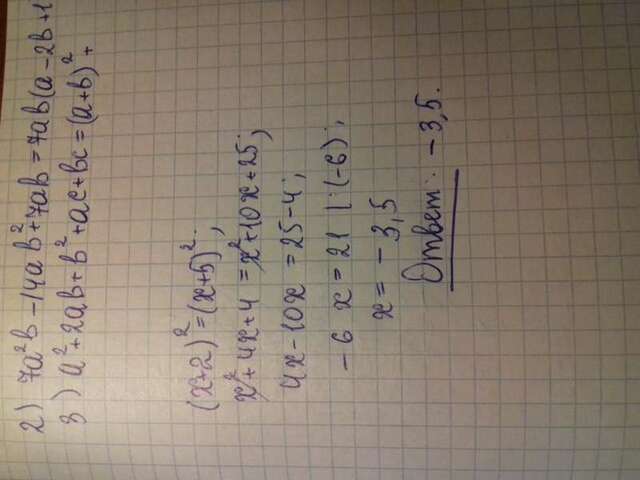 2) 7a²b - 14ab² + 7ab = 7ab(a - 2b + 1
3) a² + 2ab + b² + ac + bc = (a+b)² +
(x+2)² = (x+5)²;
x² + 4x + 4 = x² + 10x + 25;
4x - 10x = 25 - 4;
-6 x = 21 | : (-6);
x = - 3,5
Ответ: - 3,5.